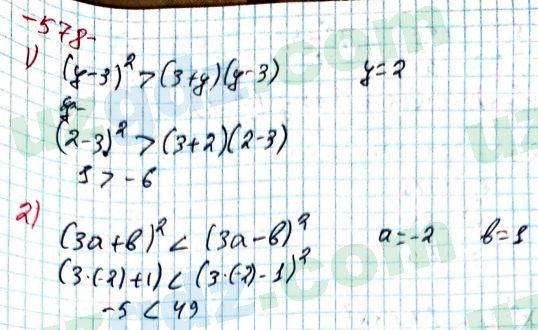 -578-
1) (y-3)² > (3+y)(y-3) y=2
(2-3)² > (3+2)(2-3)
1 > -6
2) (3a+b)² < (3a-b)² a=-2 b=1
(3·(-2)+1) < (3·(-2)-1)²
-5 < 49